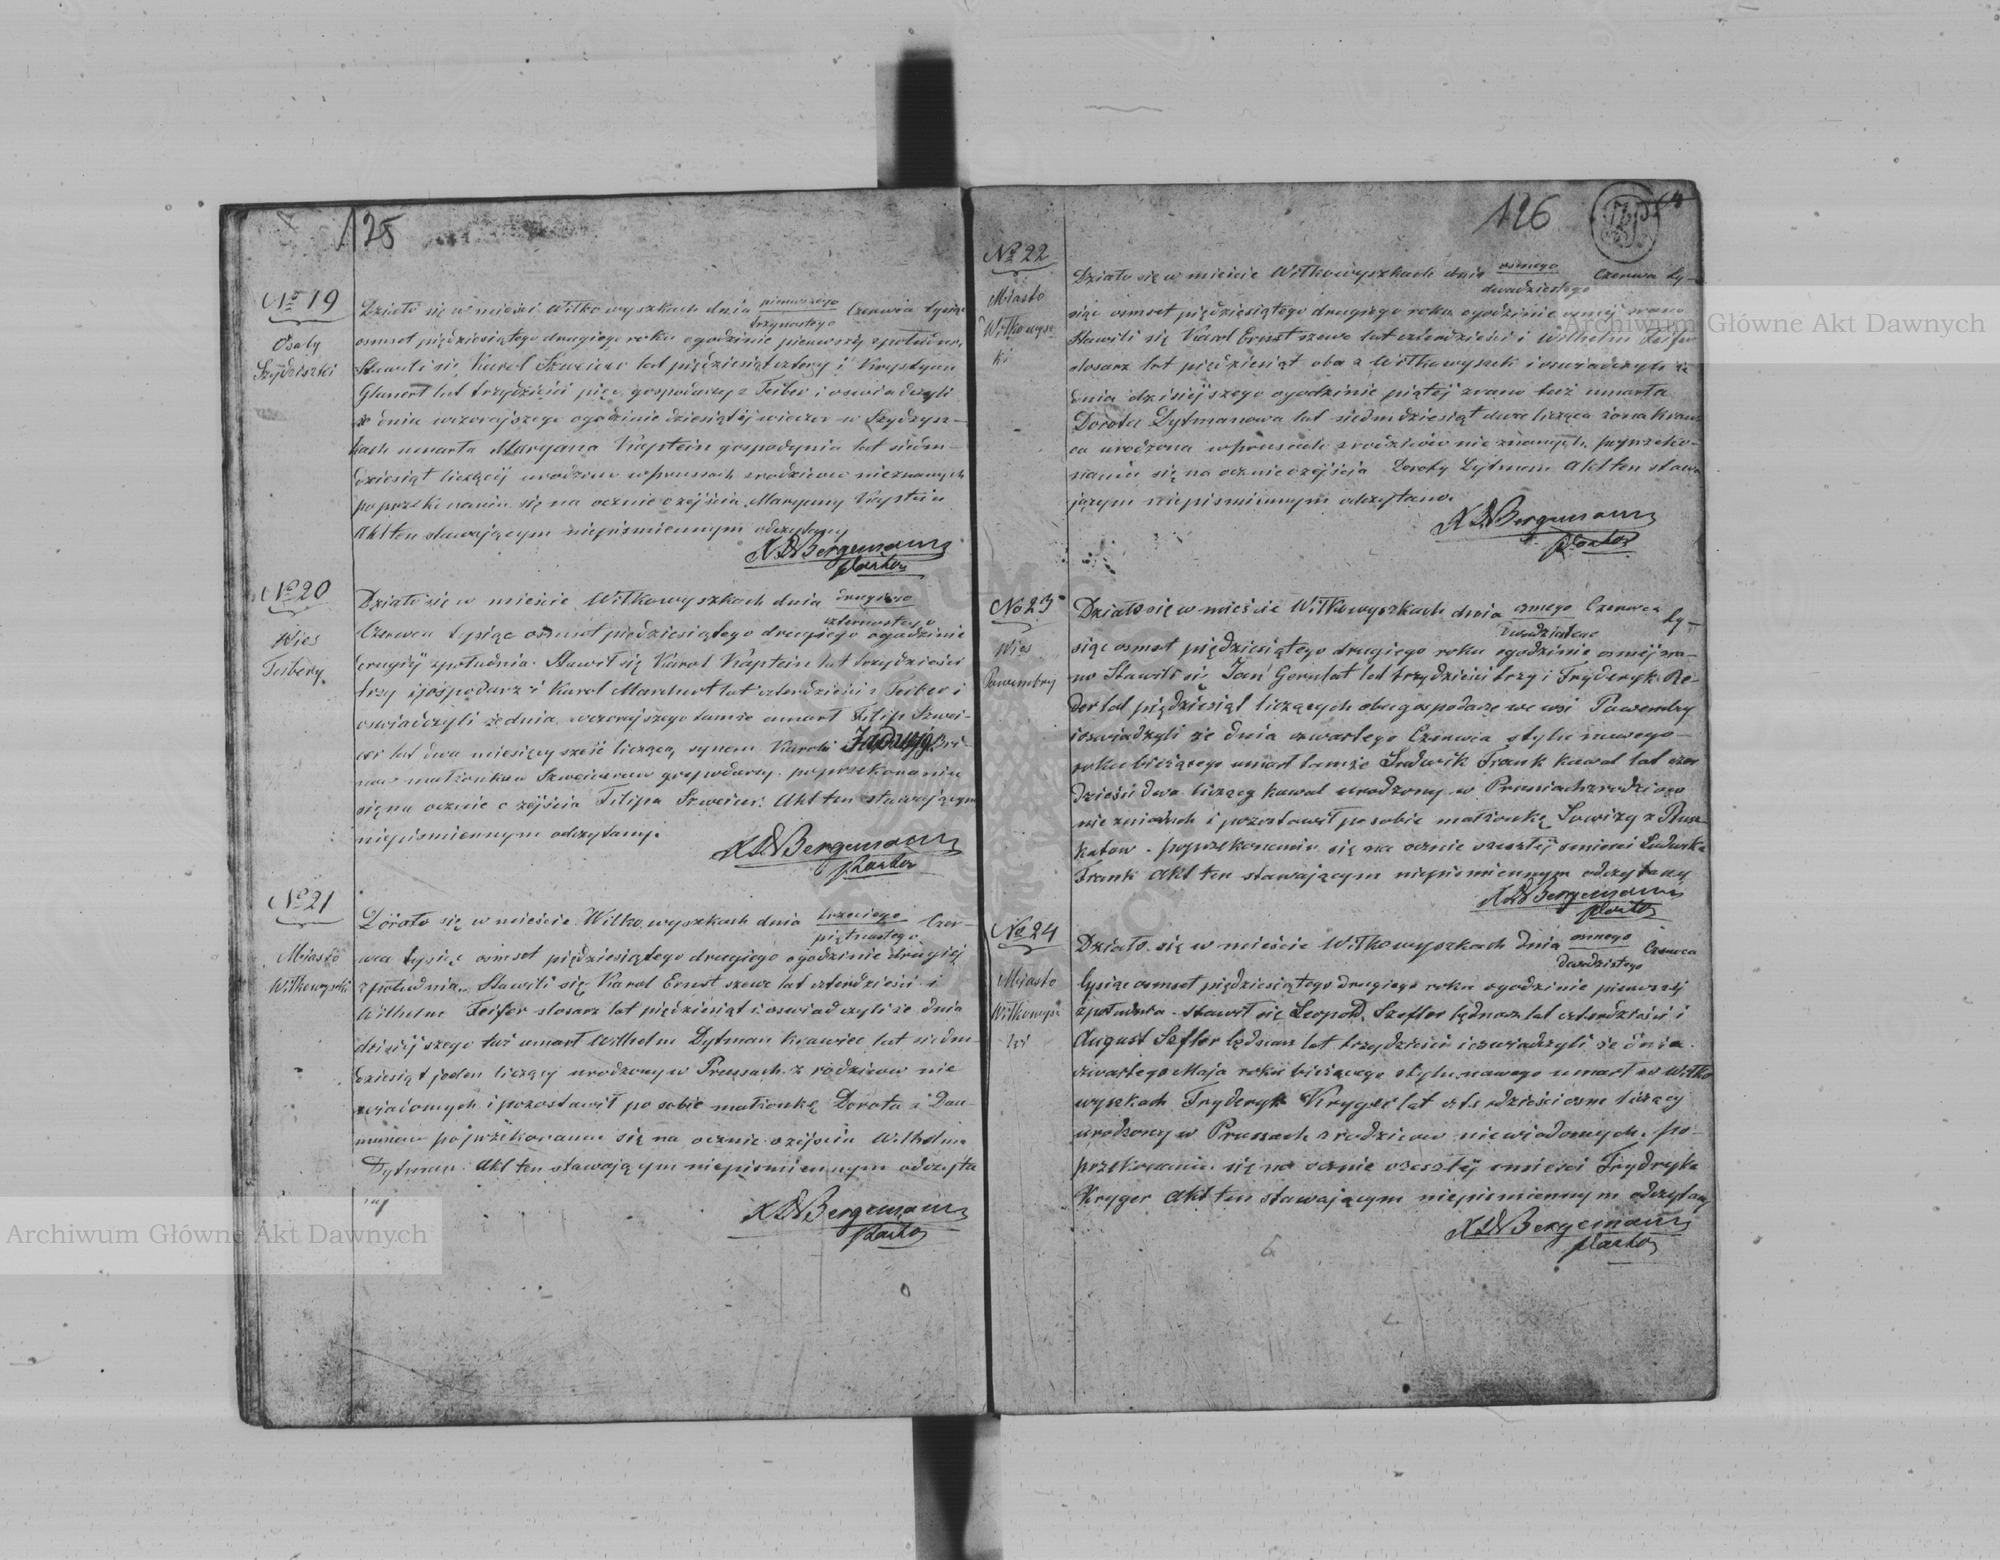 125
№ 19
Osady
Szydziszki
Działo się w mieście Wiłkowyszkach dnia pierwszego Czerwca tysiąc
trzynastego
osmset pięćdziesiątego drugiego roku o godzinie pierwszej z południa,
Stawili się Karol Szweicer lat pięćdziesiąt cztery i Krystyan
Glanert lat trzydzieści pięć gospodarzy z Feiber i oswiadczyli
że dnia wczorajszego o godzinie dziesiątej wieczor w Szydzysz-
kach umarła Maryana Kapstein gospodynia lat siedm-
dziesiąt licząca urodzona w Prusach z rodziców nieznanych
po przekonaniu się na ocznie o zejściu Maryanny Kapstein
Akt ten stawającym niepismiennym odczytany
KW Bergemann
Pastor
№ 20
Wies
Feibery
Działo się w mieście Wiłkowyszkach dnia drugiego
czternastego
Czerwca tysiąc osmset pięćdziesiątego drugiego o godzinie
drugiej z południa. Stawił się Karol Kapstein lat trzydzieści
trzy gospodarz i Karol Marchert lat czterdzieści z Feiber i
oswiadczyli że dnia wczorajszego tamże umarł Filip Szwei-
cer lat dwa miesięcy sześć liczący synem Karola
małżonków Szweicerow gospodarzy. po przekonaniu
się na ocznie o zejściu Filipa Szweicer. Akt ten stawającym
niepismiennym odczytany.
KW Bergemann
Pastor
№ 21
Miasto
Wiłkowyszki
Działo się w mieście Wiłkowyszkach dnia trzeciego Czer-
piętnastego
wca tysiąc osmset pięćdziesiątego drugiego o godzinie drugiej
z południa. Stawili się Karol Ernst szewc lat czterdzieści i
Wilhelm Feifer slosarz lat pięćdziesiąt i oswiadczyli że dnia
dzisiejszego tu umarł Wilhelm Dytman krawiec lat siedm-
dziesiąt jeden liczący urodzony w Prussach z rodziców nie
wiadomych i pozostawił po sobie małżonkę Dorota z Dau-
po przekonaniu się na ocznie o zejściu Wilhelma
Dytman. Akt ten stawającym niepismiennym odczyta
ny
KW Bergemann
Pastor
126
№ 22
Miasto
Wiłkowysz
ki
Działo się w mieście Wiłkowyszkach dnia osmego Czerwca ty-
dwudziestego
siąc osmset pięćdziesiątego drugiego roku o godzinie osmej rano
Stawili się Karol Ernst szewc lat czterdzieści i Wilhelm Feifer
slosarz lat pięćdziesiąt oba z Wiłkowyszek i oswiadczyli że
dnia dzisiejszego o godzinie piątej z rana tuż umarła
Dorota Dytmanowa lat siedmdziesiąt dwa licząca żona kraw
ca urodzona w Prusach z rodziców nie znanych, po przeko-
naniu się na ocznie o zejściu Doroty Dytman Akt ten stawa
jącym niepismiennym odczytano.
KW Bergemann
Pastor
№ 23
Wies
Pawembry
Działo się w mieście Wiłkowyszkach dnia osmego Czerwca ty-
dwudziestego
siąc osmset pięćdziesiątego drugiego roku o godzinie osmej ra-
no Stawili się Jan Gerulat lat trzydzieści trzy i Fryderyk Re-
der lat pięćdziesiąt liczących oba gospodarze we wsi Pawembry
i oswiadczyli że dnia czwartego Czerwca stylu nowego
roku bieżącego umarł tamże Ludwik Frank kowal lat czter
dzieści dwa liczący kowal urodzony w Prusiach z rodziców
nie znanych i pozostawił po sobie małżonkę Lowizę z Rusz
katow. po przekonaniu się na ocznie o zeszłej smierci Ludwika
Frank Akt ten stawającym niepismiennym odczytany
KW Bergemann
Pastor
№ 24
Miasto
Wiłkowysz
ki
Działo się w mieście Wiłkowyszkach dnia osmego Czerwca
dwudziestego
tysiąc osmset pięćdziesiątego drugiego roku o godzinie pierwszej
z południa. stawił się Leopold Szefler bednarz lat czterdzieści i
August Szefler bednarz lat trzydzieści i oswiadczyli że dnia
czwartego Maja roku bieżącego stylu nowego umarł w Wiłko
wyszkach Fryderyk Kryger lat czterdzieści osm liczący
urodzony w Prussach z rodziców niewiadomych. po
przekonaniu się na ocznie o zeszłej smierci Frydryka
Kryger Akt ten stawającym niepismiennym odczytany
KW Bergemann
Pastor
Archiwum Główne Akt Dawnych
Archiwum Główne Akt Dawnych